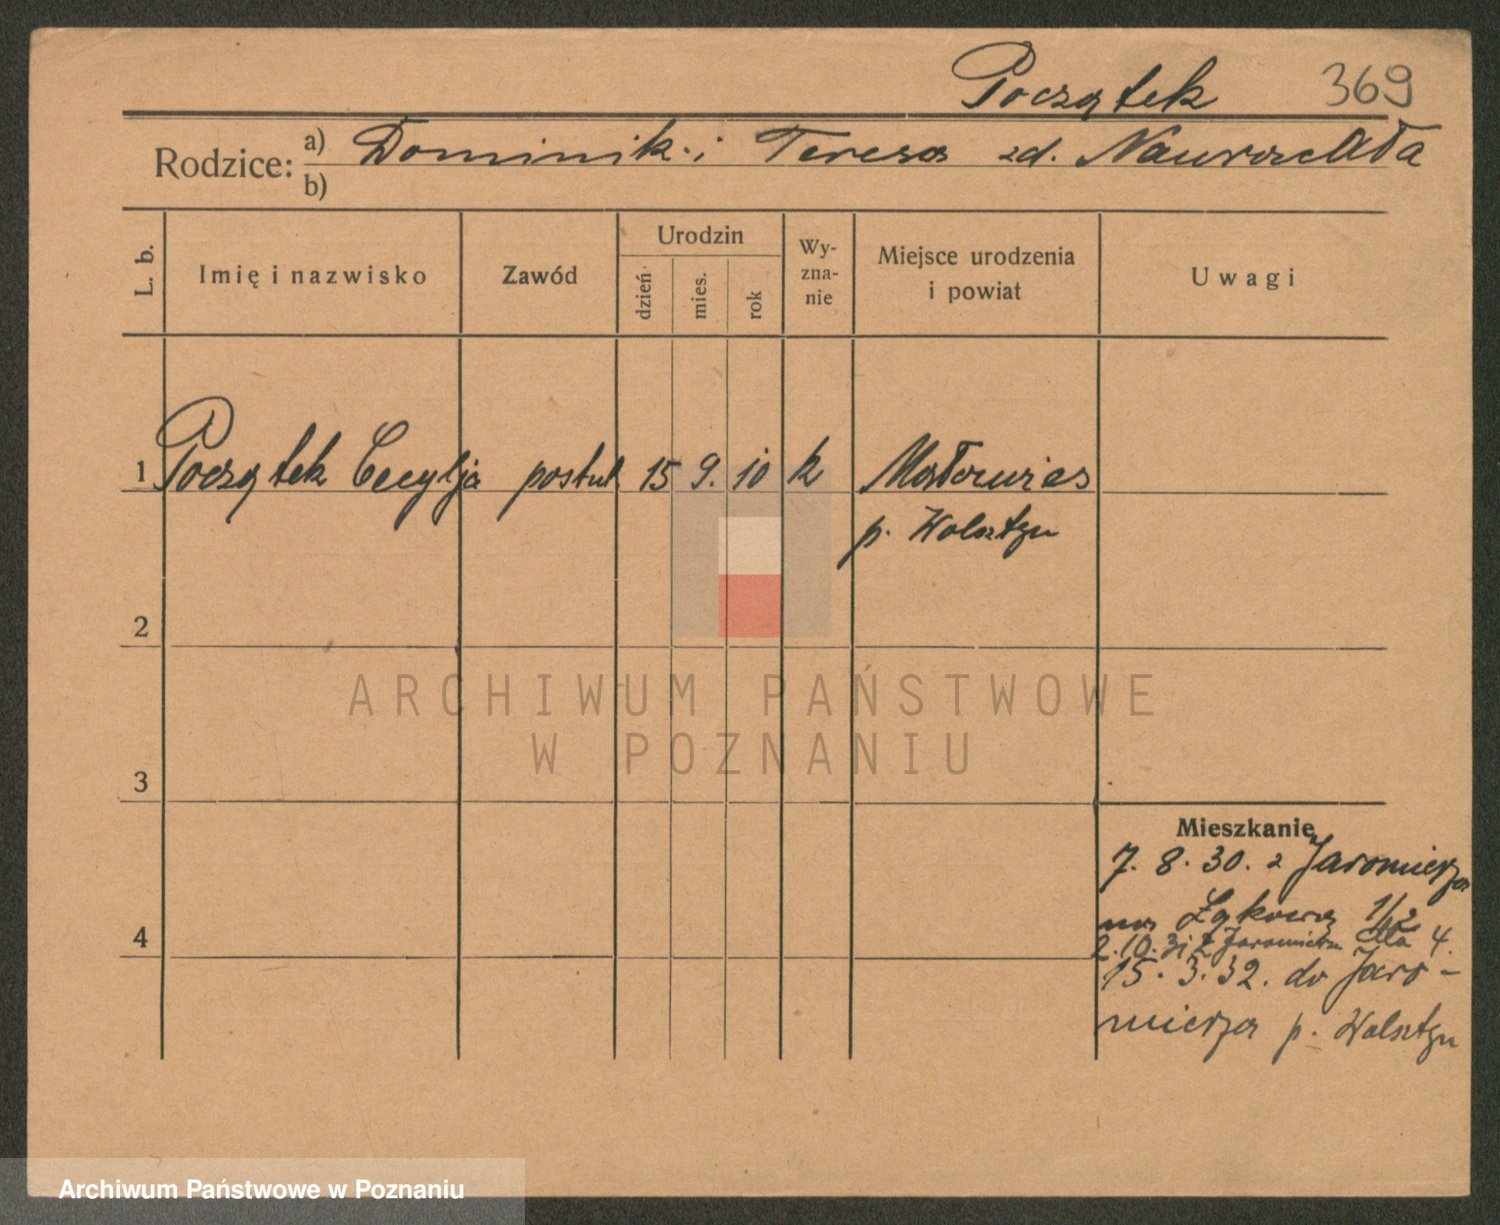 Początek 369
Rodzice: a) Dominik i Teresa zd. Nawrocka
b)
L. b. Imię i nazwisko Zawód Urodzin dzień mies. rok Wy-zna-nie Miejsce urodzenia i powiat Uwagi
1 Początek Cecylja postul 15 9. 10 k Maławieś
p. Wolsztyn
2
ARCHIWUM PAŃSTWOWE
W POZNANIU
3
Mieszkanie
7. 8. 30. z Jaromierza
na Łąkową 1/2
2.10.31 z Jaromierza dla 4.
15. 3. 32. do Jaro-
mierza p. Wolsztyn
4
Archiwum Państwowe w Poznaniu